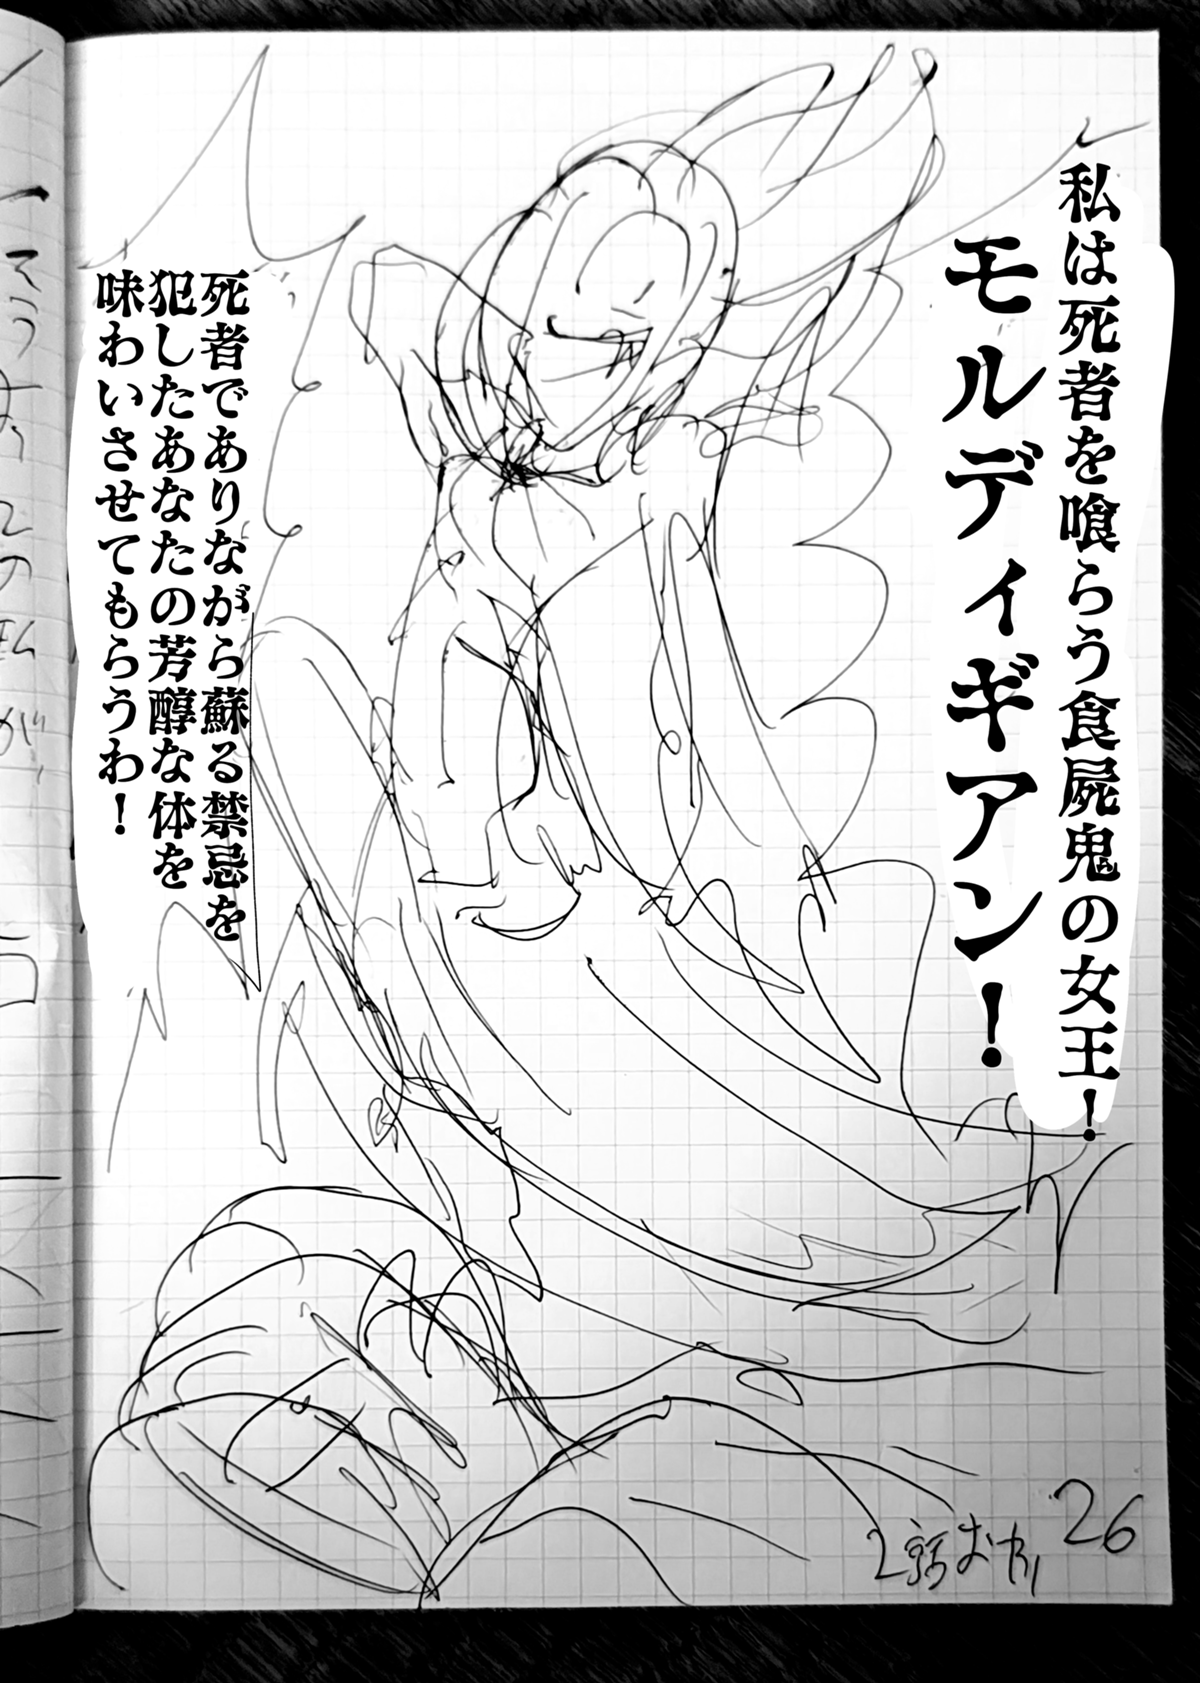 私は死者を喰らう食屍鬼の女王！
モルディギアン！
死者でありながら蘇る禁忌を
犯したあなたの芳醇な体を
味わいさせてもらうわ！
2話おわり
26